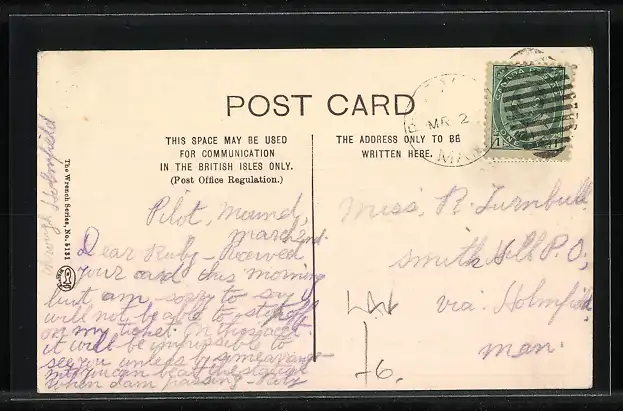 POST CARD
THIS SPACE MAY BE USED
FOR COMMUNICATION
IN THE BRITISH ISLES ONLY.
(Post Office Regulation.)
THE ADDRESS ONLY TO BE
WRITTEN HERE.
CANADA
MR 2
MAN
The Wrench Series, No. 5151
through Holmfield
Pilot, Mound,
March 2nd.
Dear Ruby - Received
your card this morning
but am sorry to say I
will not be able to stop off
on my ticket.
it will be impossible to
see you unless by some
you can be at the station
when I am passing
Miss, R. Turnbull
Smith Hill P.O,
via. Holmfield,
man.